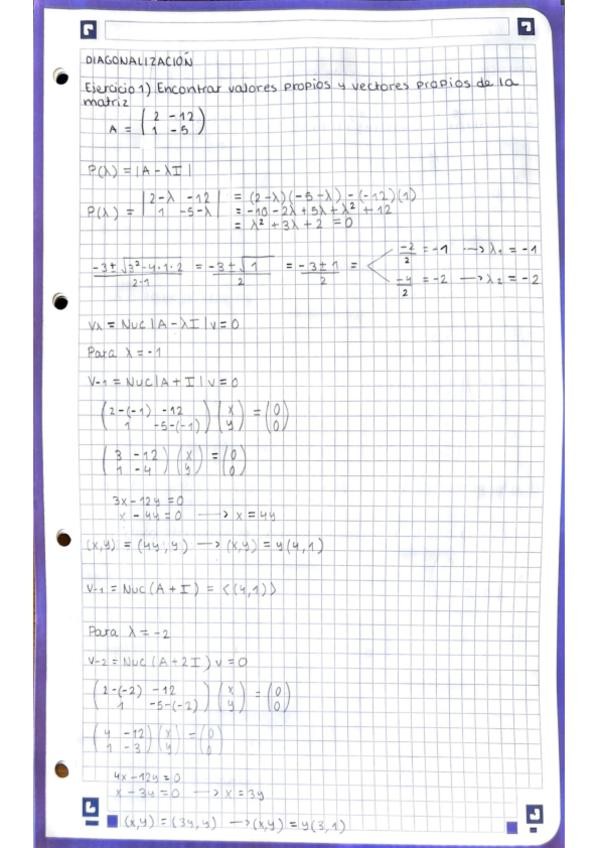 DIAGONALIZACIÓN
Ejercicio 1) Encontrar valores propios y vectores propios de la
matriz
A = ( 2 -12
1 -5 )
P(λ) = |A - λI|
P(λ) = | 2-λ -12
1 -5-λ | = (2-λ)(-5-λ) - (-12)(1)
= -10 - 2λ + 5λ + λ² + 12
= λ² + 3λ + 2 = 0
-3 ± √3² - 4·1·2 / 2·1 = -3 ± √1 / 2 = -3 ± 1 / 2 =
-2/2 = -1 → λ₁ = -1
-4/2 = -2 → λ₂ = -2
Vλ = Nuc |A - λI| v = 0
Para λ = -1
V-1 = Nuc |A + I| v = 0
( 2-(-1) -12
1 -5-(-1) ) ( x
y ) = ( 0
0 )
( 3 -12
1 -4 ) ( x
y ) = ( 0
0 )
3x - 12y = 0
x - 4y = 0 → x = 4y
(x,y) = (4y, y) → (x,y) = y(4,1)
V-1 = Nuc (A + I) = <(4,1)>
Para λ = -2
V-2 = Nuc (A + 2I) v = 0
( 2-(-2) -12
1 -5-(-2) ) ( x
y ) = ( 0
0 )
( 4 -12
1 -3 ) ( x
y ) = ( 0
0 )
4x - 12y = 0
x - 3y = 0 → x = 3y
(x,y) = (3y, y) → (x,y) = y(3,1)